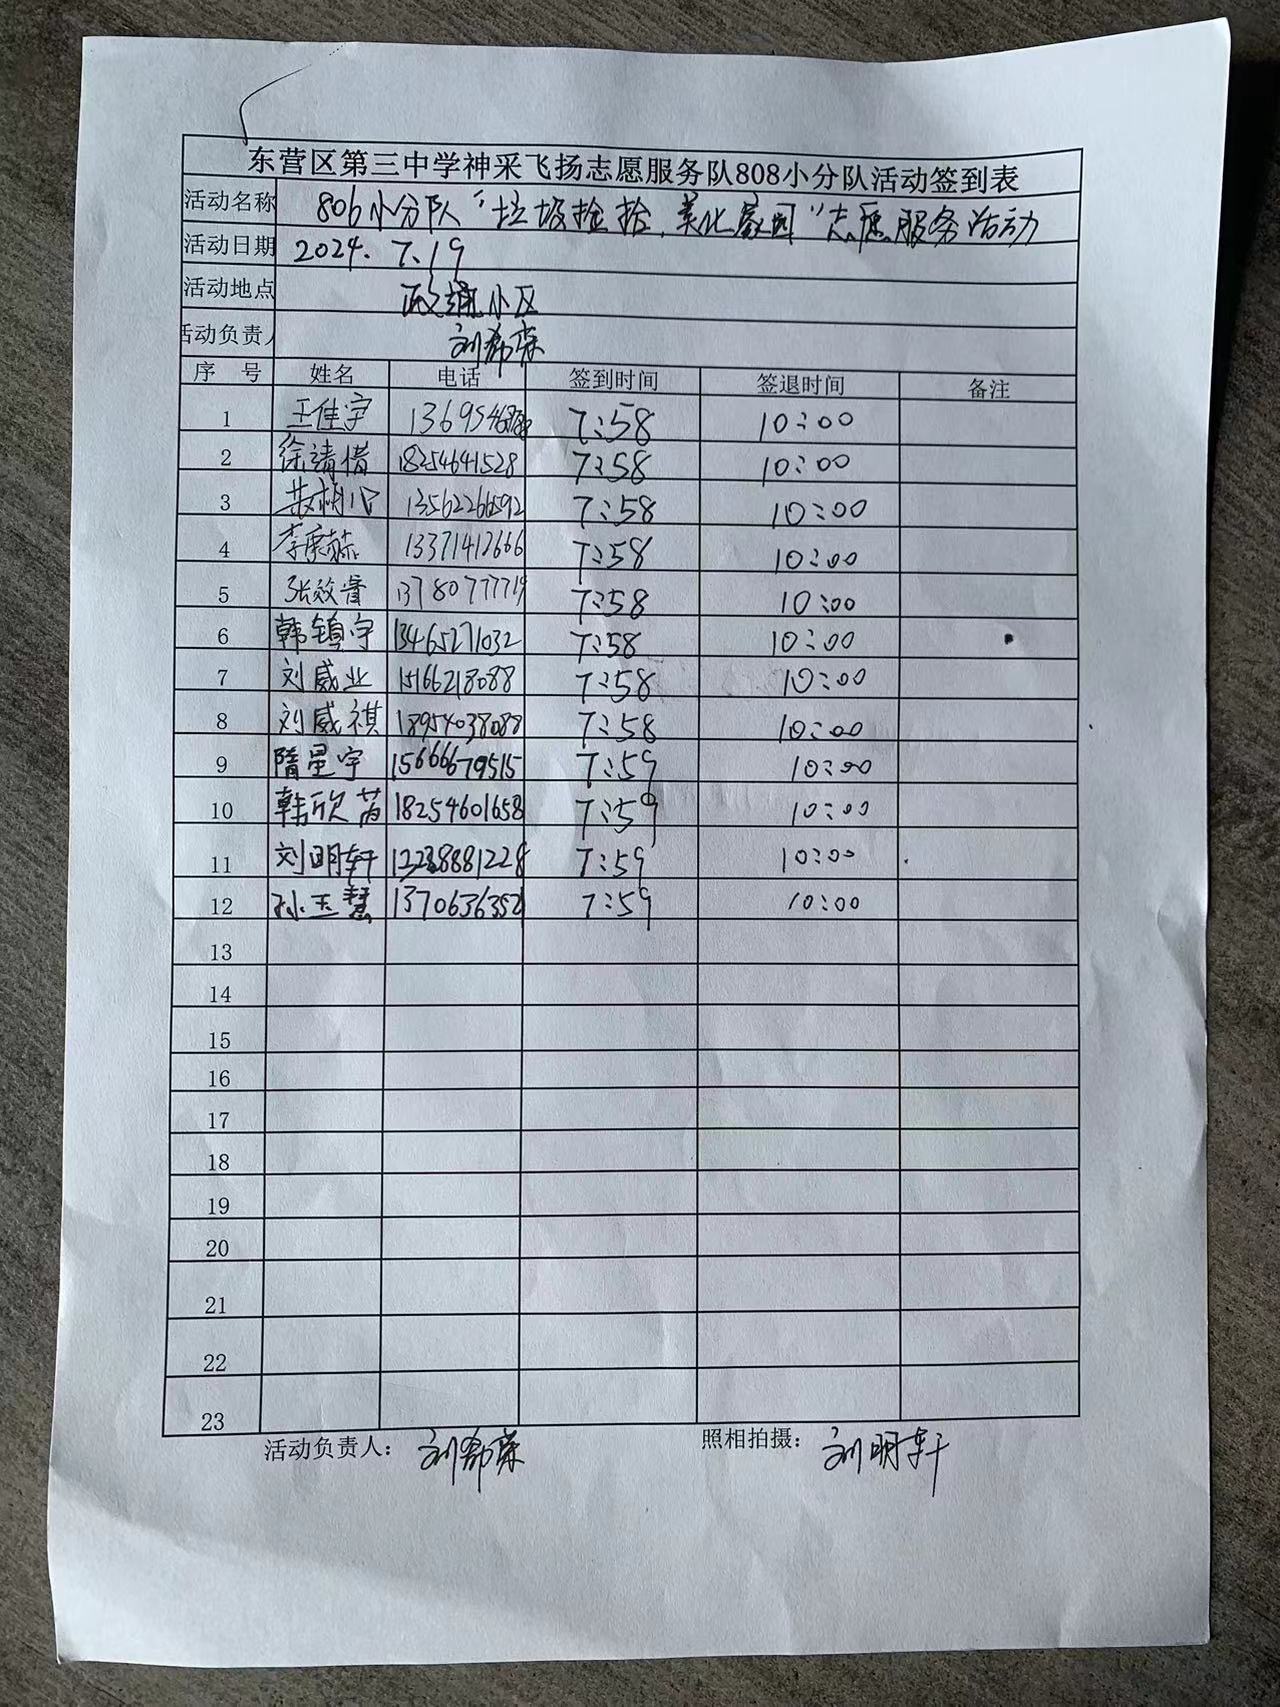 东营区第三中学神采飞扬志愿服务队808小分队活动签到表
活动名称 806小分队“垃圾捡拾,美化家园”志愿服务活动
活动日期 2024.7.19
活动地点 政通小区
活动负责人 刘希荣
序 号 姓名 电话 签到时间 签退时间 备注
1 王佳宇 7:58 10:00
2 徐靖惜 18254641528 7:58 10:00
3 13562266592 7:58 10:00
4 13371412666 7:58 10:00
5 张效睿 13780777719 7:58 10:00
6 韩镇宇 13465271032 7:58 10:00
7 刘威业 15166218088 7:58 10:00
8 刘威祺 18954038088 7:58 10:00
9 隋星宇 15666679515 7:59 10:00
10 韩欣芮 18254601658 7:59 10:00
11 刘明轩 7:59 10:00
12 孙玉慧 13706363521 7:59 10:00
13
14
15
16
17
18
19
20
21
22
23
活动负责人: 刘希荣 照相拍摄: 刘明轩